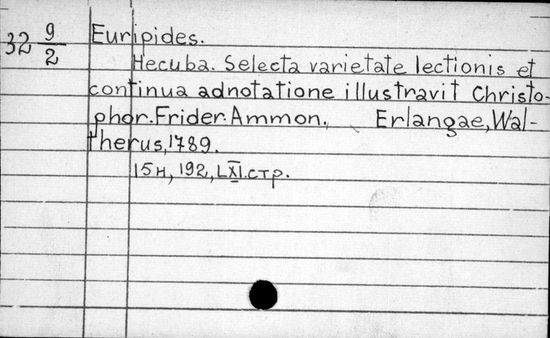 32 9/2 Euripides.
Hecuba. Selecta varietate lectionis et
continua adnotatione illustravit Christo-
phor. Frider. Ammon. Erlangae, Wal-
therus, 1789.
15н, 192, LXI стр.